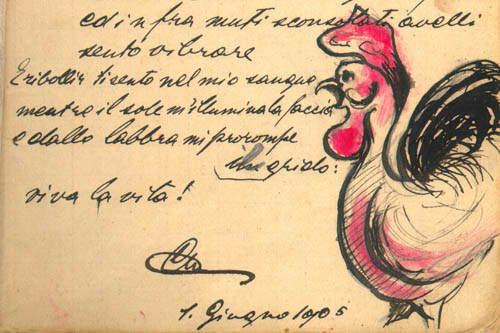 ed infra muti sconsolati avelli
sento vibrare
E ribollir ti sento nel mio sangue
mentre il sole m'illumina la faccia
e dallo labbra mi prorompe
il grido:
viva la vita!
1. Giugno 1905